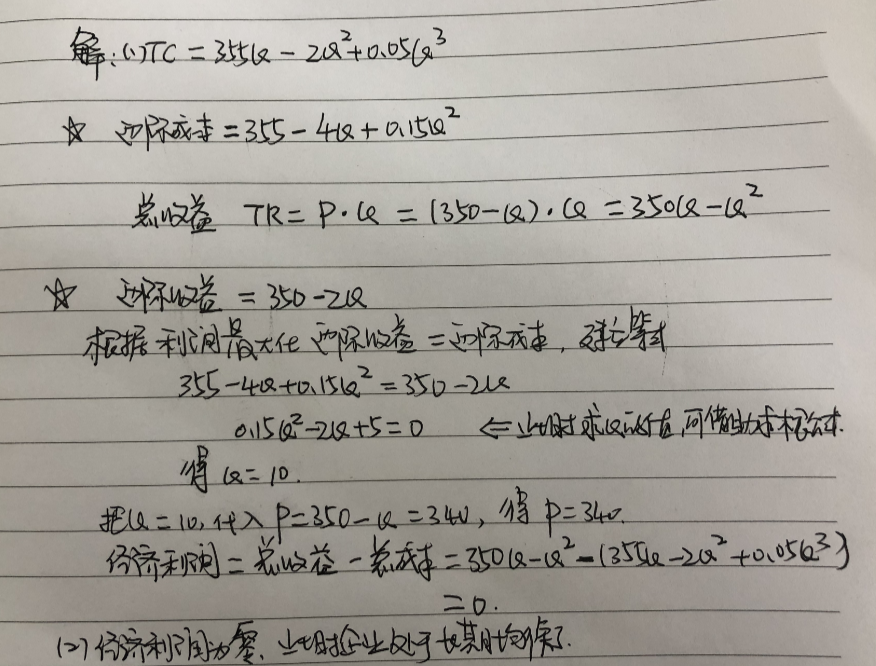 解:(1)TC=355Q-2Q²+0.05Q³
☆ 边际成本=355-4Q+0.15Q²
总收益 TR=P·Q=(350-Q)·Q=350Q-Q²
☆ 边际收益=350-2Q
根据利润最大化 边际收益=边际成本,建立等式
355-4Q+0.15Q²=350-2Q
0.15Q²-2Q+5=0 ⇐此时求Q的值,可借助求根公式.
得 Q=10.
把Q=10,代入 P=350-Q=340, 得 P=340.
经济利润=总收益-总成本=350Q-Q²-(355Q-2Q²+0.05Q³)
=0.
(2)经济利润为零、此时企业处于长期均衡了.